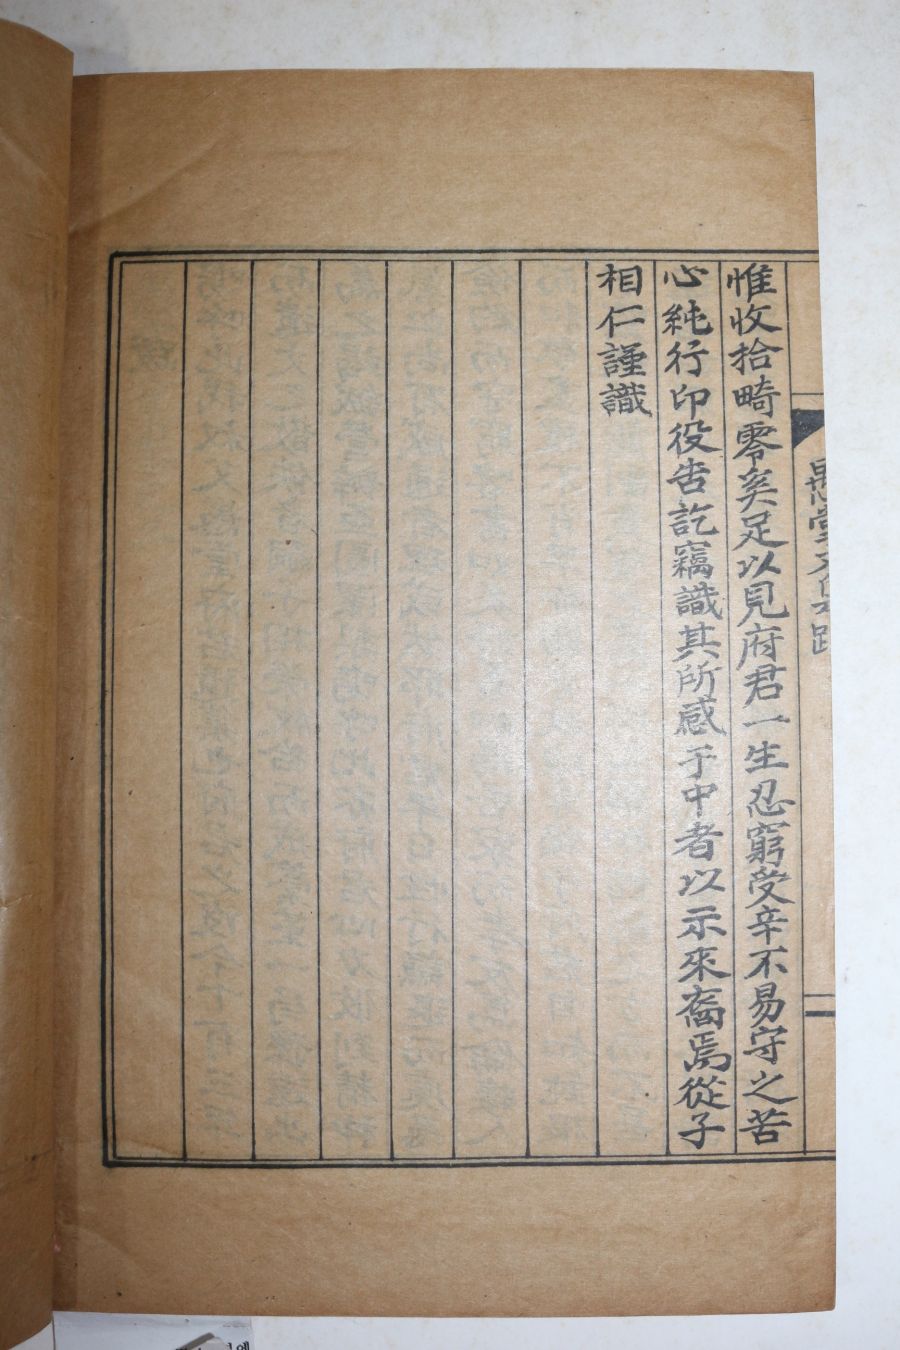 惟收拾畸零矣足以見府君一生忍窮受辛不易守之苦
心純行印役告訖竊識其所感于中者以示來裔焉從子
相仁謹識